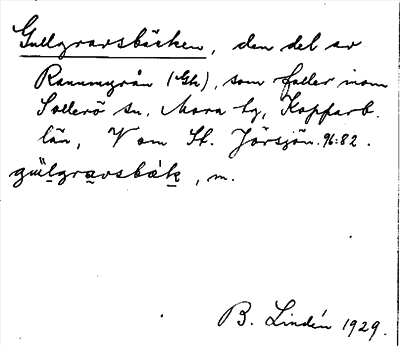 Gullgravsbäcken, den del av
Rammgrån (Gk), som faller inom
Sollerö sn, Mora tg, Kopparb.
län, V om St. Jörsjön. 96:82.
gul̲gra̲vsbäk̲, m.
B. Lindén 1929.